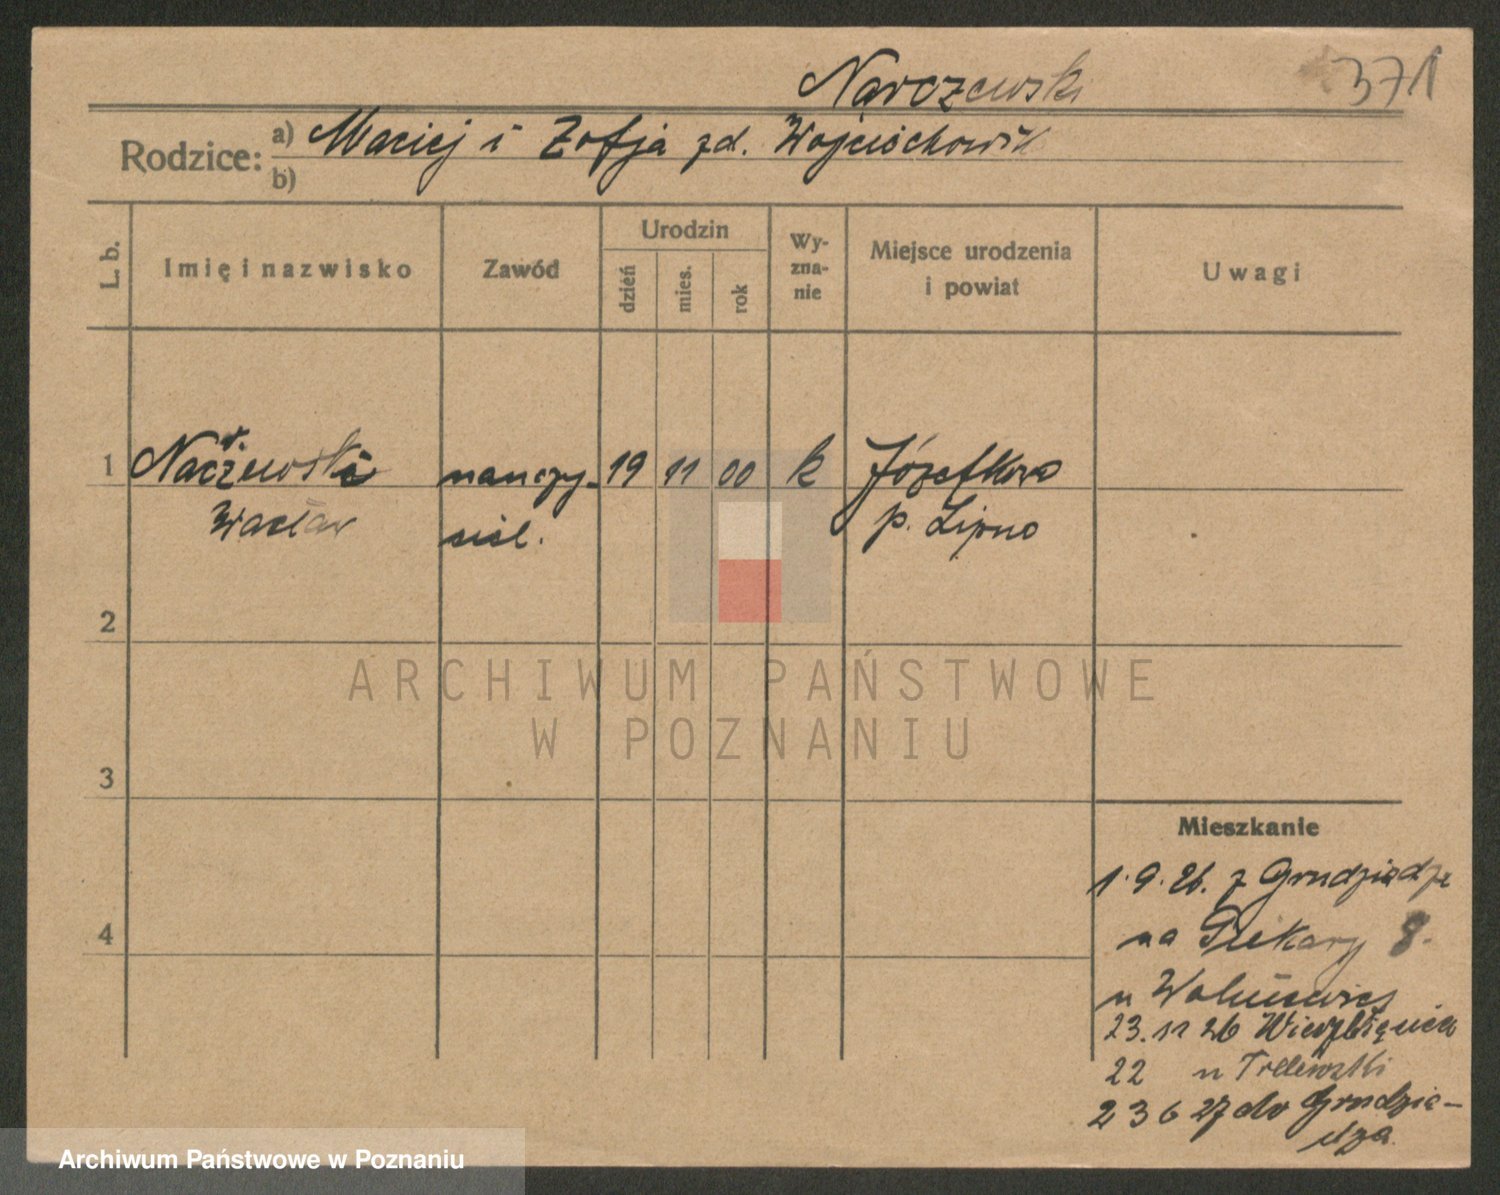 Narczewski
371
Rodzice: a) Maciej i Zofja zd. Wojciechowsk
b)
L. b.
Imię i nazwisko
Zawód
Urodzin
dzień
mies.
rok
Wy-
zna-
nie
Miejsce urodzenia
i powiat
Uwagi
1 Naczewski nauczy- 19 11 00 k Józefkowo
r.
Wacław siel. p. Lipno
2
3
4
ARCHIWUM PAŃSTWOWE
W POZNANIU
Mieszkanie
1.9.26. z Grudziądza
na Piekary 8.
u
23.11 26 Wierzbięcice
22 u
23 6 27 do Grudzią-
dza.
Archiwum Państwowe w Poznaniu